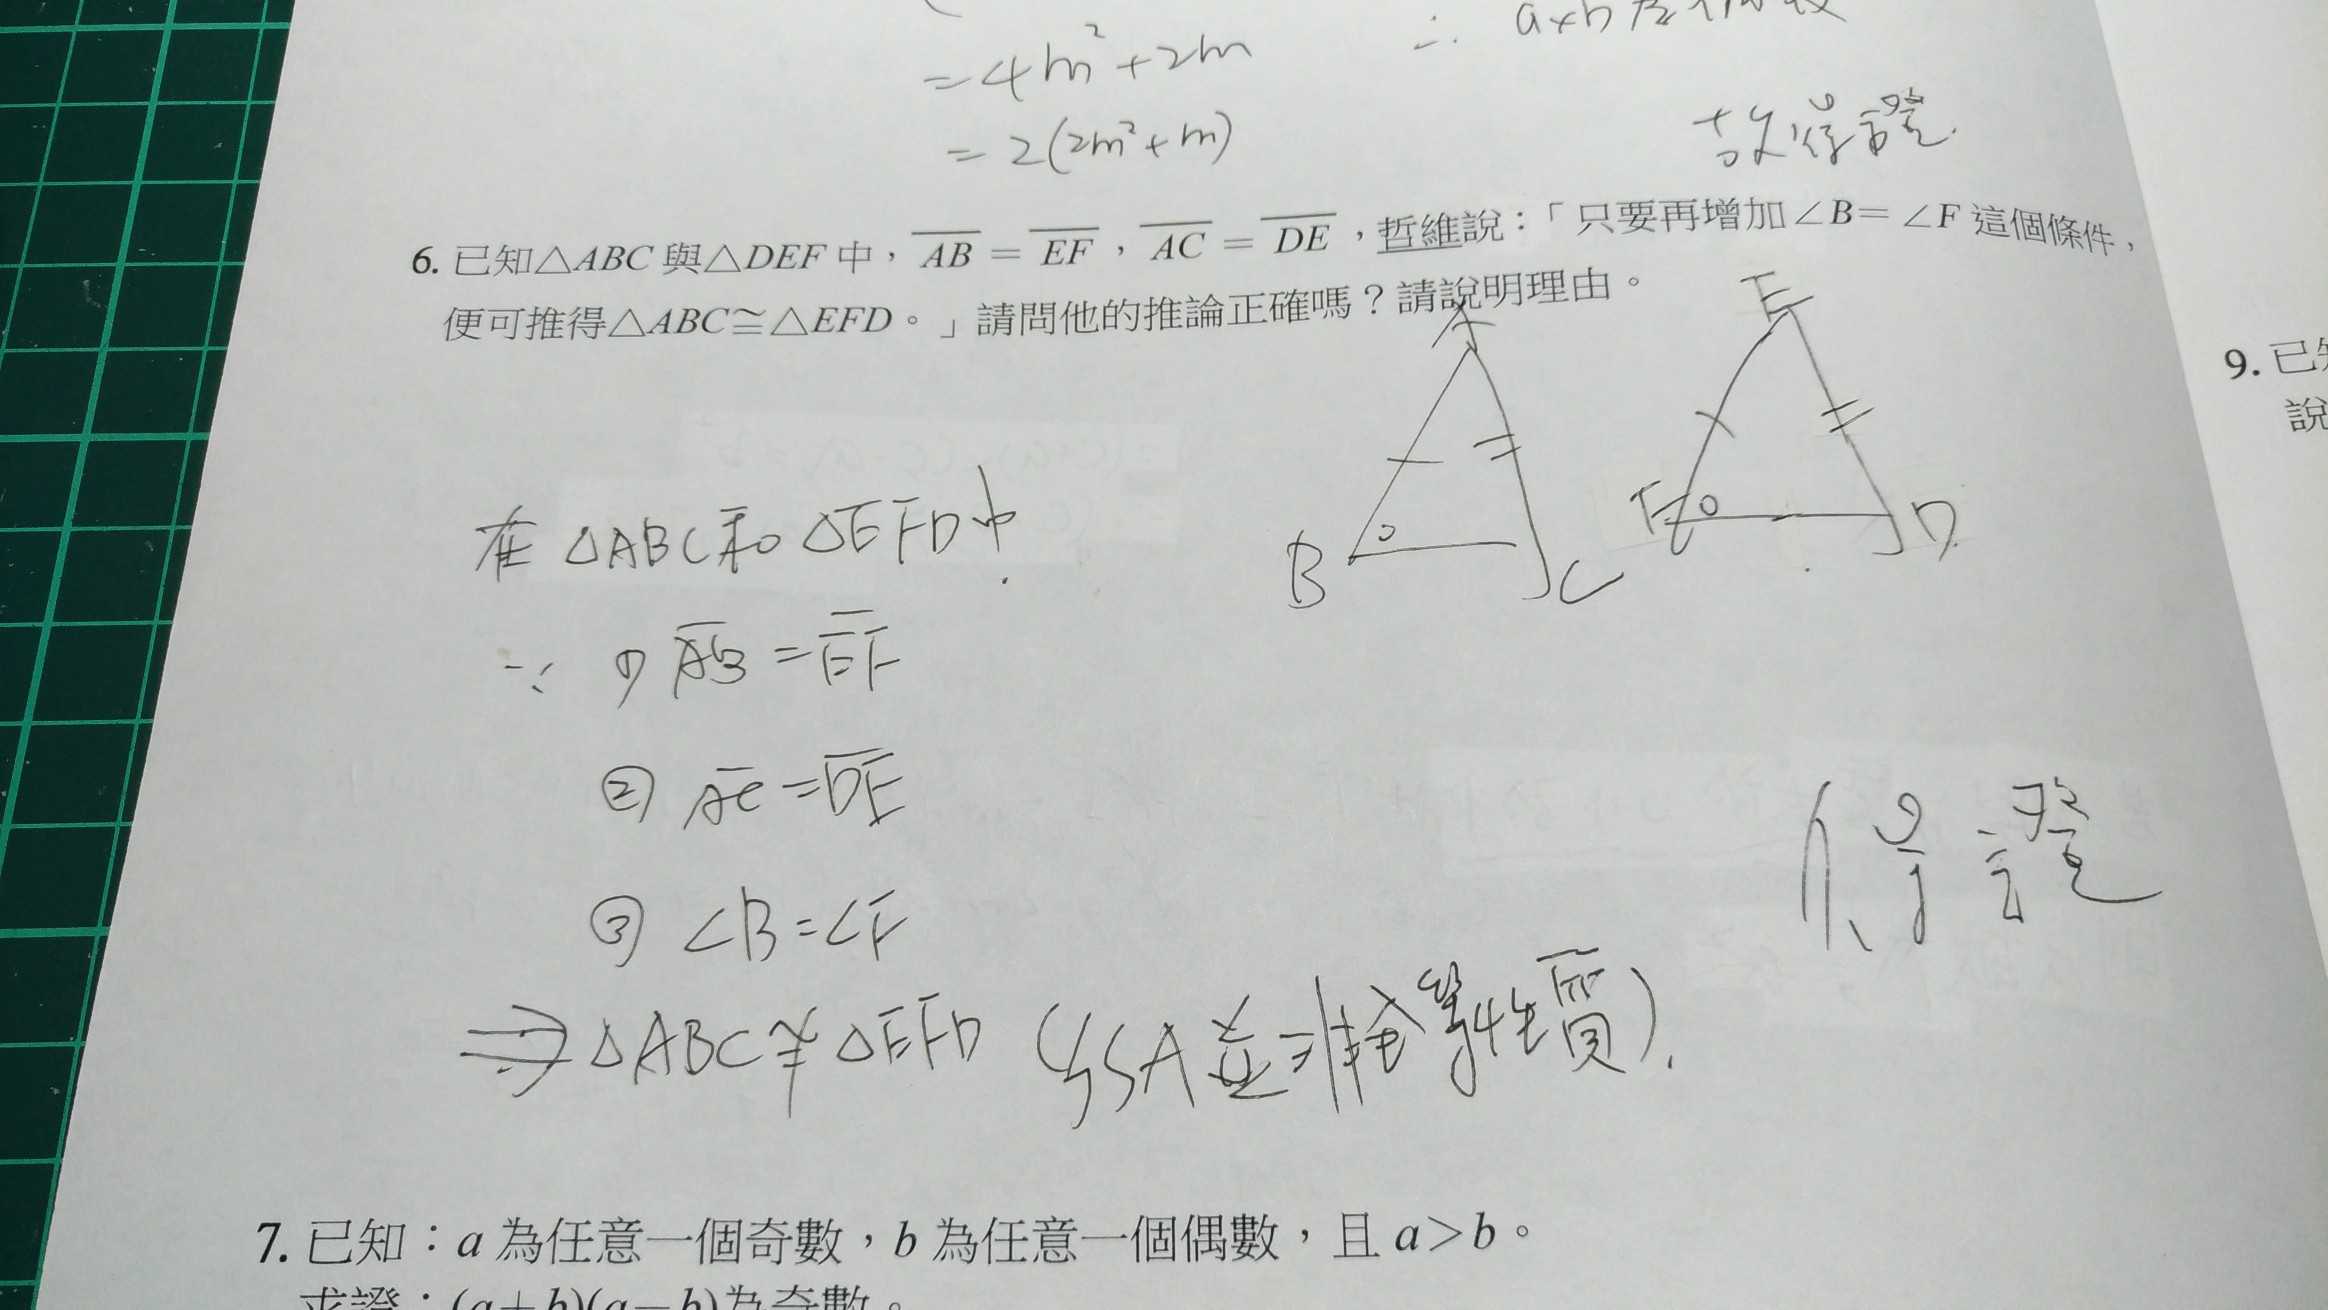 = 4m² + 2m
∴ a×b
= 2(2m² + m)
故得證.
6. 已知△ABC與△DEF中，AB = EF，AC = DE，哲維說：「只要再增加∠B = ∠F這個條件，
便可推得△ABC≅△EFD。」請問他的推論正確嗎？請說明理由。
A
E
B
C
F
D
在 △ABC和 △EFD中.
∵ ① AB = EF
② AC = DE
③ ∠B = ∠F
得證
⇒ △ABC ≇ △EFD (SSA並非全等性質).
9. 已
說
7. 已知：a 為任意一個奇數，b 為任意一個偶數，且 a＞b。
求證：(a+b)(a−b)為奇數。